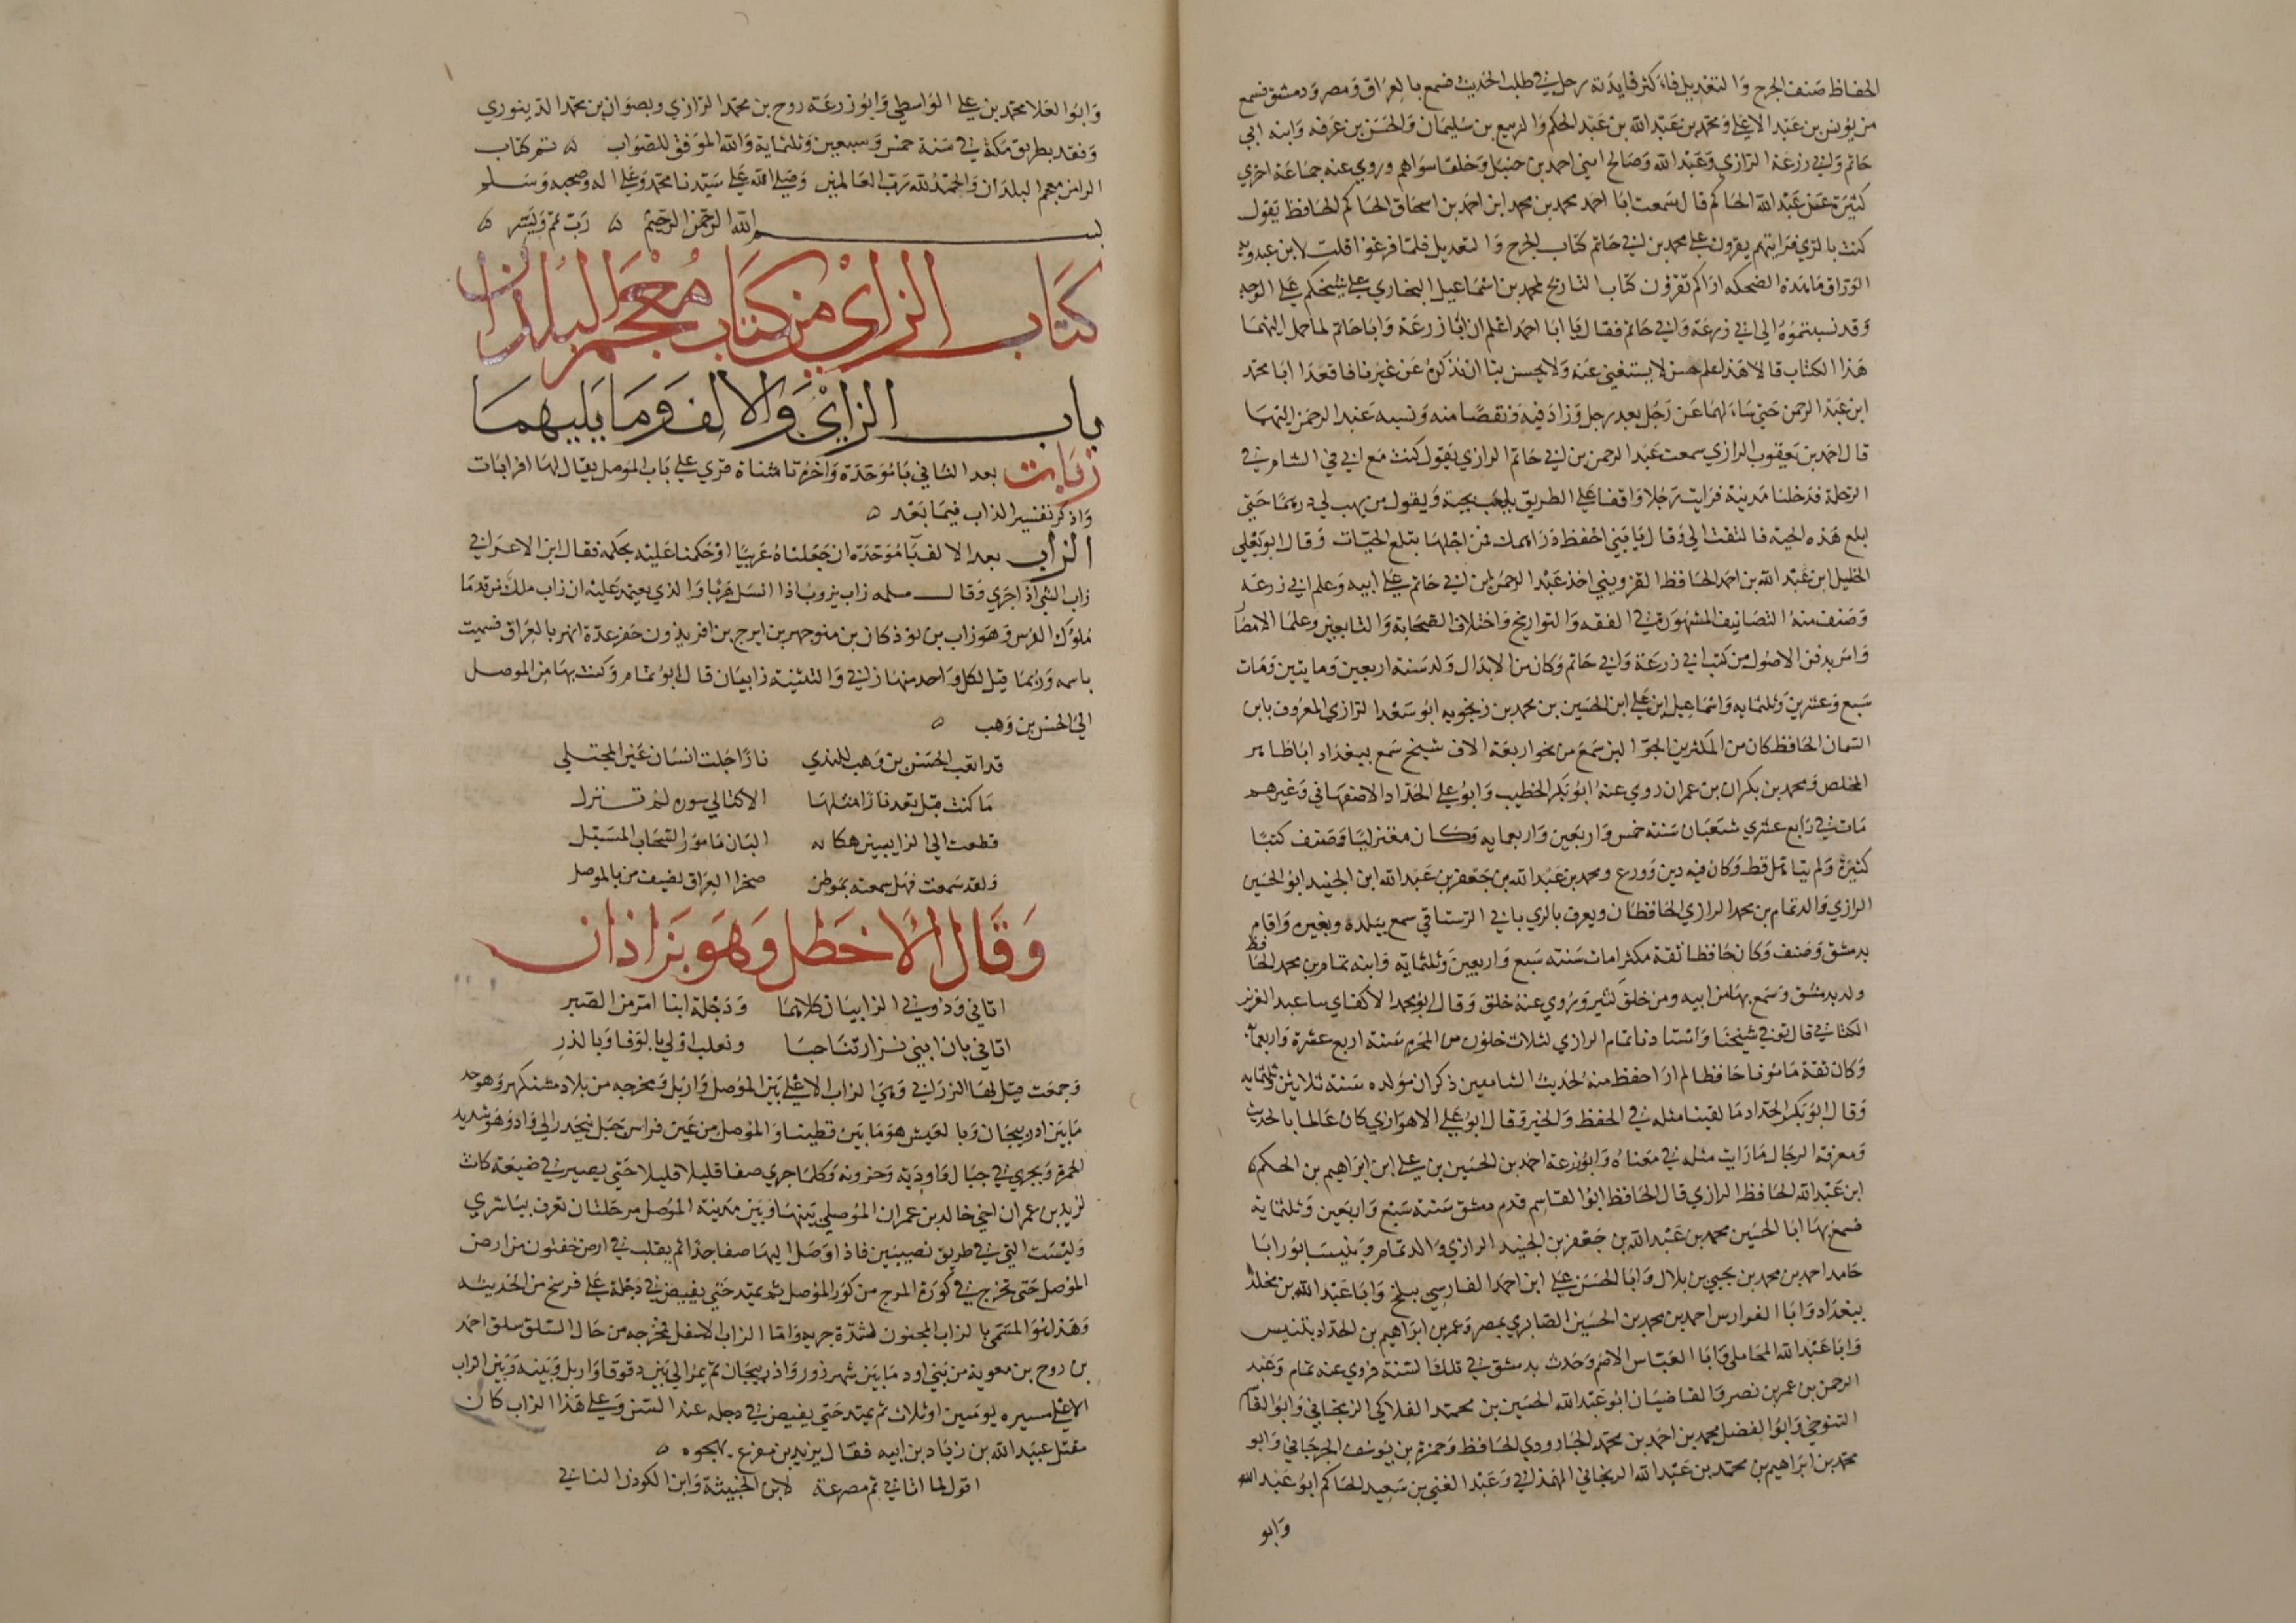 الحفاظ صنف الجرح والتعديل فاكثر فايدته رحل في طلب الحديث فسمع بالعراق ومصر ودمشق فسمع
من يونس بن عبد الاعلى ومحمد بن عبد الله بن عبد الحكم والربيع بن سليمان والحسن بن عرفه وابنه ابي
حاتم وابي زرعة الرازي وعبد الله وصالح ابني احمد بن حنبل وخلقا سواهم وروي عنه جماعة اخري
كثيرة عن عبد الله الحاكم قال سمعت ابا احمد محمد بن محمد ابن احمد بن اسحاق الحاكم الحافظ يقول
كنت بالري فرايتهم يقرون على محمد بن ابي حاتم كتاب الجرح والتعديل فلما فرغوا قلت لابن عبدويه
الوراق ما هذه الضحكه اراكم تقرؤن كتاب التاريخ لمحمد بن اسماعيل البخاري على شيخكم على الوجه
وقد نسبتموه الى ابي زرعة وابي حاتم فقال يا ابا احمد اعلم ان ابا زرعة وابا حاتم لما حمل اليهما
هذا الكتاب قالا هذا علم حسن لا يستغني عنه ولا يحسن بنا ان نذكره عن غيرنا فاقعدا ابا محمد
ابن عبد الرحمن حتي ساءلهما عن رجل بعد رجل وزاد فيه ونقصا منه ونسبه عبد الرحمن اليهما
قال احمد بن يعقوب الرازي سمعت عبد الرحمن بن ابي حاتم الرازي يقول كنت مع ابي في الشام في
الرحلة فدخلنا مدينة فرايت رجلا واقفا على الطريق يلعب بحية ويقول من يهب لي درهما حتي
ابلع هذه الحية فالتفت الي وقال يا بني احفظ دراهمك فمن اجلها تبلع الحيات وقال ابو يعلي
الخليل ابن عبد الله بن احمد الحافظ القزويني اخذ عبد الرحمن ابن ابي حاتم على ابيه وعلم ابي زرعه
وصنف منه التصانيف المشهورة في الفقه والتواريخ واختلاف الصحابة والتابعين وعلما الامصار
من كتب ابي زرعة وابي حاتم وكان من الابدال ولد سنة اربعين ومايتين ومات
سبع وعشرين وثلثمايه واسماعيل بن على ابن الحسين بن محمد بن زنجويه ابو سعد الرازي المعروف بابن
السمان الحافظ كان من المكثرين الجوالين سمع من نحو اربعة الاف شيخ سمع ببغداد اباطاهر
المخلص ومحمد بن بكران بن عمران روي عنه ابو بكر الخطيب وابو علي الحداد الاصفهاني وغيرهم
مات في رابع عشري شعبان سنة خمس واربعين واربعمايه وكان معتزليا وصنف كتبا
كثيرة ولم يتاهل قط وكان فيه دين وورع ومحمد بن عبد الله بن جعفر بن عبد الله ابن الجنيد ابو الحسين
الرازي والد تمام بن محمد الرازي الحافظان ويعرف بالري بابي الرستاقي سمع ببلده وبغيره واقام
بدمشق وصنف وكان حافظا ثقة مكثرا مات سنة سبع واربعين وثلثماية وابنه تمام بن محمد الحافظ
ولد بدمشق وسمع بها من ابيه ومن خلق كثير وروي عنه خلق وقال ابو محمد الاكفاي سا عبد العزيز
الكتاني قال توفي شيخنا واستادنا تمام الرازي لثلاث خلون من المحرم سنة اربع عشرة واربعمايه
وكان ثقة مامونا حافظا لم ار احفظ منه لحديث الشاميين ذكر ان مولده سنة ثلاثين وثلثمايه
وقال ابو بكر الحداد ما لقينا مثله في الحفظ والخير وقال ابو علي الاهوازي كان عالما بالحديث
ومعرفة الرجال ما رايت مثله في معناه وابو زرعة احمد بن الحسين بن على ابن ابراهيم بن الحكم
ابن عبد الله الحافظ الرازي قال الحافظ ابو القاسم قدم دمشق سنة سبع واربعين وثلثماية
فسمع بها ابا الحسين محمد بن عبد الله بن جعفر بن الجنيد الرازي والد تمام وبنيسابور ابا
حامد احمد بن محمد بن يحيي بن بلال وابا الحسن على ابن احمد الفارسي ببلخ وابا عبد الله بن مخلد
ببغداد وابا الفوارس احمد بن محمد بن الحسين الصابري بمصر وعمر بن ابراهيم بن الحداد بتنيس
وابا عبد الله المحاملي وابا العباس الاصم وحدث بدمشق في تلك السنة فروي عنه تمام وعبد
الرحمن بن عمر بن نصر والقاضيان ابو عبد الله الحسين بن محمد الفلاكي الزنجاني وابو القاسم
التنوخي وابو الفضل محمد بن احمد بن محمد الجارودي الحافظ وحمزة بن يوسف الجرجاني وابو
محمد بن ابراهيم بن محمد بن عبد الله الريحاني الهمذاني وعبد الغني بن سعيد الحاكم ابو عبد الله
وابو
وابو العلا محمد بن على الواسطي وابو زرعة روح بن محمد الرازي وبصوان بن محمد الدينوري
وفقد بطريق مكة في سنة خمس وسبعين وثلثماية والله الموفق للصواب ه تم كتاب
الرا من معجم البلدان والحمد لله رب العالمين وصلى الله على سيدنا محمد وعلى اله وصحبه وسلم
بسم الله الرحمن الرحيم ه رب تمم ويسر ه
كتاب الزاي من كتاب معجم البلدان
باب الزاي والالف وما يليهما
زابات بعد الثاني با موحدة واخره تا مثناة قري على باب الموصل يقال لها افرابات
واذكر تفسير الزاب فيما بعد ه
الزاب بعد الالف با موحدة ان جعلناه عربيا او حكمنا عليه بحكمه فقال ابن الاعرابي
زاب الشي اذا جري وقال سلمه زاب يزوب اذا انسل هربا والذي يعتمد عليه ان زاب ملك من قدما
ملوك الفرس وهو زاب بن بوذكان بن منوجهر بن ايرج بن افريذون حفر عدة انهر بالعراق فسميت
باسمه وربما قيل لكل واحد منها زابي والتثنية زابيان قال ابو تمام وكتب بها من الموصل
الي الحسن بن وهب ه
قد اثقب الحسن بن وهب للندي نارا جلت انسان عين المجتلي
ما كنت قبل بعد نارا مثلها الا كتالي سوره لم تنزل
قطعت الي الزابيين هكاته البان مامور السحاب المسبل
ولقد سمعت فهل سمعت بموطن صخر العراق نضيف من بالموصل
وقال الاخطل وهو بزاذان
اتاني ودوني الزابيان كلاهما ودجلة ابنا امر من الصبر
اتاني بان ابني نزار تناحبا وتغلب اولي بالوفا وبالغدر
وجمعت قيل لها الزوابي وهي الزاب الاعلى بين الموصل واربل ومخرجه من بلاد مشتكهر وهو حد
ما بين اذربيجان وبالعيش هو ما بين قطينا والموصل من عين فراس جبل ينحدر الي واد وهو شديد
الحمرة ويجري في جبال واودية وحزونه وكلما جري صفا قليلا قليلا حتي يصير في ضيعة كانت
لزيد بن عمران اخي خالد بن عمران الموصلي بينها وبين مدينة الموصل مرحلتان تعرف بباشزي
وليست التي في طريق نصيبين فاذا وصل اليها صفا جدا ثم يقلب في ارض حفتون من ارض
الموصل حتى تخرج في كورة المرج من كور الموصل ثم يمتد حتي يفيض في دجلة على فرسخ من الحديثه
وهذا هو المسمي بالزاب المجنون لشدة جريه واما الزاب الاسفل فمخرجه من جبال السلق سلق احمد
بن روح بن معوية من بني اود ما بين شهرزور واذربيجان ثم يمر الي بين دقوقا واربل وبينه وبين الزاب
الاعلى مسيره يومين او ثلاث ثم يمتد حتي يفيض في دجله عند السن وعلى هذا الزاب كان
مقتل عبيد الله بن زياد بن ابيه فقال يزيد بن مفرغ يهجوه ه
اقول لما اتاني ثم مصرعة لابن الخبيثة وابن الكودن الناني